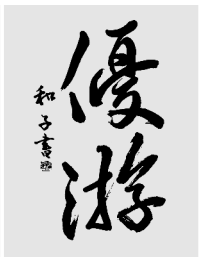 優游
和子書